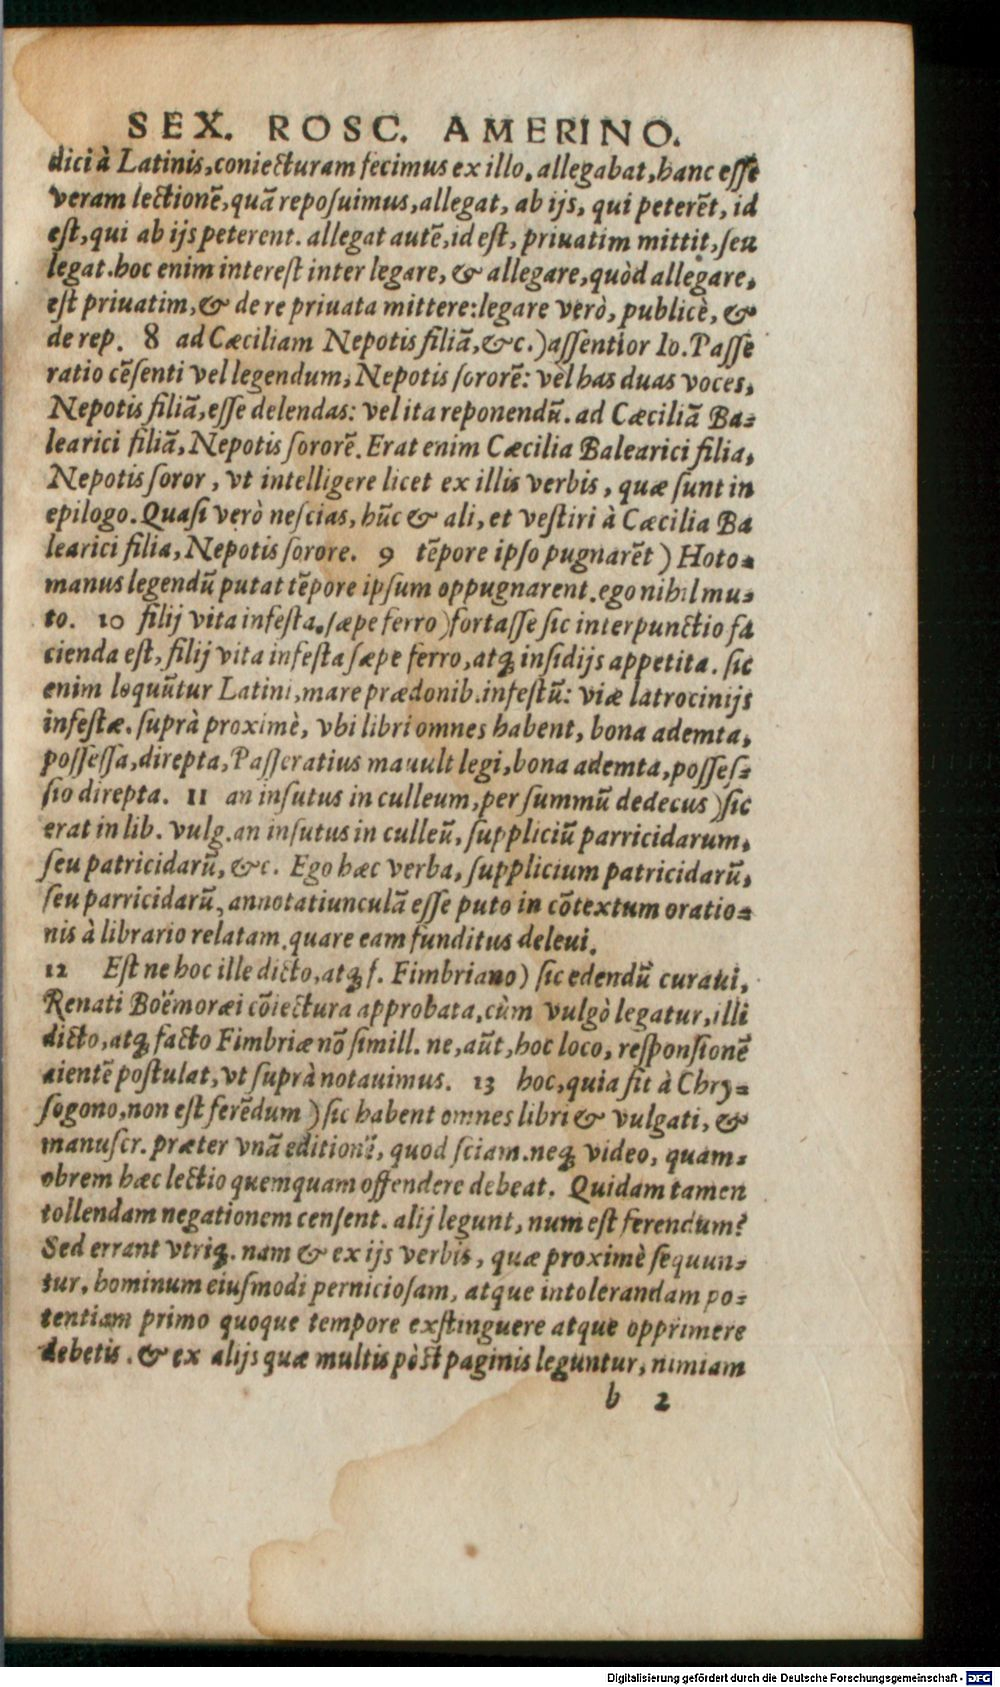 SEX. ROSC. AMERINO.
dici à Latinis,coniecturam fecimus ex illo, allegabat, hanc esſe
veram lectionē,quā repoſuimus,allegat, ab ijs, qui peterēt, id
eſt,qui ab ijs peterent. allegat autē,id eſt, priuatim mittit,ſeu
legat.hoc enim intereſt inter legare, & allegare,quòd allegare,
eſt priuatim,& de re priuata mittere:legare verò, publicè, &
de rep. 8 ad Cæciliam Nepotis filiā,&c.)aſſentior Io.Paſſe
ratio cēſenti vel legendum, Nepotis ſororē: vel has duas voces,
Nepotis filiā,eſſe delendas: vel ita reponendū. ad Cæciliā Ba-
learici filiā,Nepotis ſororē.Erat enim Cæcilia Balearici filia,
Nepotis ſoror, vt intelligere licet ex illis verbis, quæ ſunt in
epilogo.Quaſi verò neſcias, hūc & ali, et veſtiri à Cæcilia Ba
learici filia,Nepotis ſorore. 9 tēpore ipſo pugnarēt) Hoto-
manus legendū putat tēpore ipſum oppugnarent.ego nihil mu-
to. 10 filij vita infeſta,ſæpe ferro)fortaſſe ſic interpunctio fa
cienda eſt,filij vita infeſta ſæpe ferro,atq; inſidijs appetita. ſic
enim loquūtur Latini,mare prædonib.infeſtū: viæ latrocinijs
infeſtæ. ſuprà proximè, vbi libri omnes habent, bona ademta,
poſſeſſa,direpta,Paſſeratius mauult legi,bona ademta,poſſeſ-
ſio direpta. 11 an inſutus in culleum,per ſummū dedecus)ſic
erat in lib. vulg.an inſutus in culleū, ſuppliciū parricidarum,
ſeu patricidarū,&c. Ego hæc verba, ſupplicium patricidarū,
ſeu parricidarū, annotatiunculā eſſe puto in cōtextum oratio-
nis à librario relatam.quare eam funditus deleui.
12 Eſt ne hoc ille dicto,atq; f. Fimbriano) ſic edendū curaui,
Renati Boëmoræi cōiectura approbata,cùm vulgò legatur,illi
dicto,atq; facto Fimbriæ nō ſimill. ne,aūt,hoc loco, reſponſionē
aientē poſtulat,vt ſuprà notauimus. 13 hoc,quia fit à Chry-
ſogono,non eſt ferēdum)ſic habent omnes libri & vulgati, &
manuſcr. præter vnā editionē, quod ſciam.neq; video, quam-
obrem hæc lectio quemquam offendere debeat. Quidam tamen
tollendam negationem cenſent. alij legunt, num eſt ferendum?
Sed errant vtriq;. nam & ex ijs verbis, quæ proximè ſequun-
tur, hominum eiuſmodi pernicioſam, atque intolerandam po-
tentiam primo quoque tempore exſtinguere atque opprimere
debetis. & ex alijs quæ multis pòſt paginis leguntur, nimiam
b 2
Digitalisierung gefördert durch die Deutsche Forschungsgemeinschaft - DFG